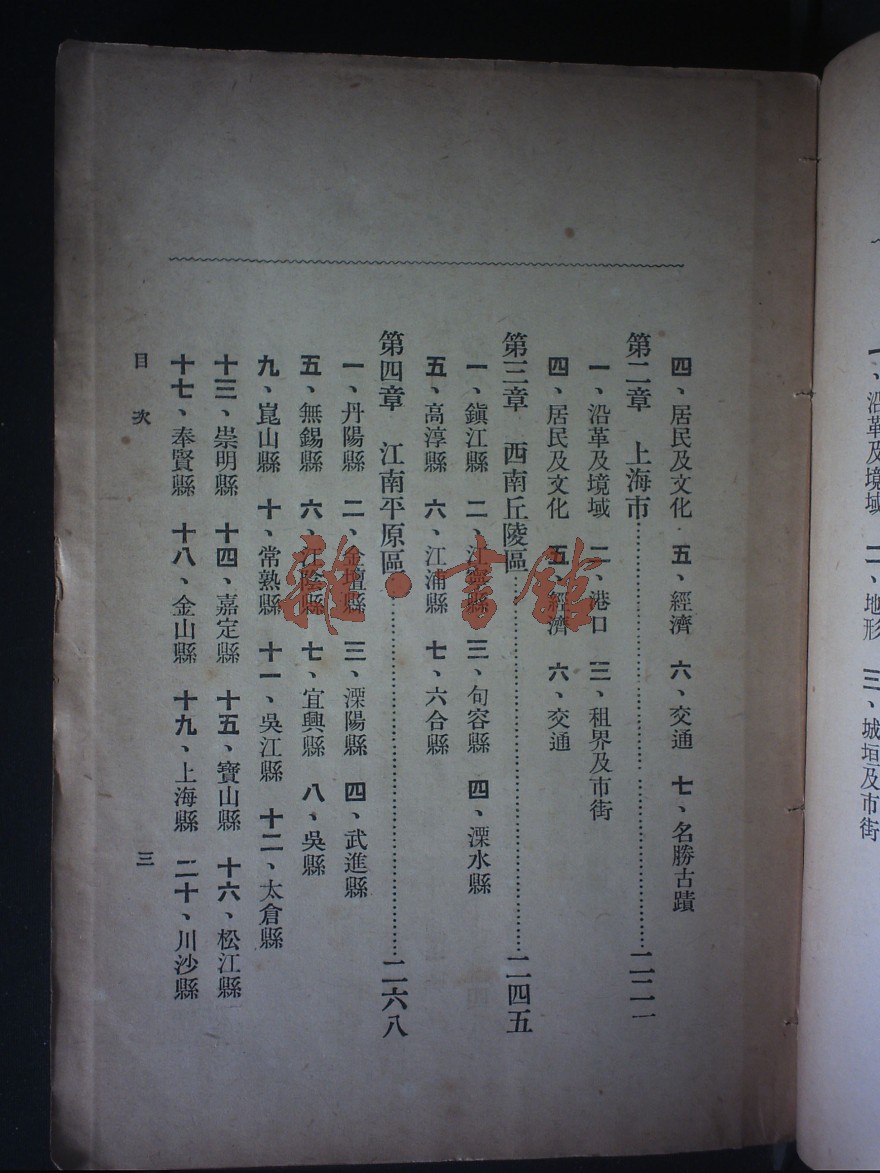 四、居民及文化 五、經濟 六、交通 七、名勝古蹟
第二章 上海市……二二一
一、沿革及境域 二、港口 三、租界及市街
四、居民及文化 五、經濟 六、交通
第三章 西南丘陵區……二四五
一、鎭江縣 二、江寧縣 三、句容縣 四、溧水縣
五、高淳縣 六、江浦縣 七、六合縣
第四章 江南平原區……二六八
一、丹陽縣 二、金壇縣 三、溧陽縣 四、武進縣
五、無錫縣 六、江陰縣 七、宜興縣 八、吳縣
九、崑山縣 十、常熟縣 十一、吳江縣 十二、太倉縣
十三、崇明縣 十四、嘉定縣 十五、寶山縣 十六、松江縣
十七、奉賢縣 十八、金山縣 十九、上海縣 二十、川沙縣
目次 三
雜·書館
沿革及境域 二、地形 三、城垣及市街